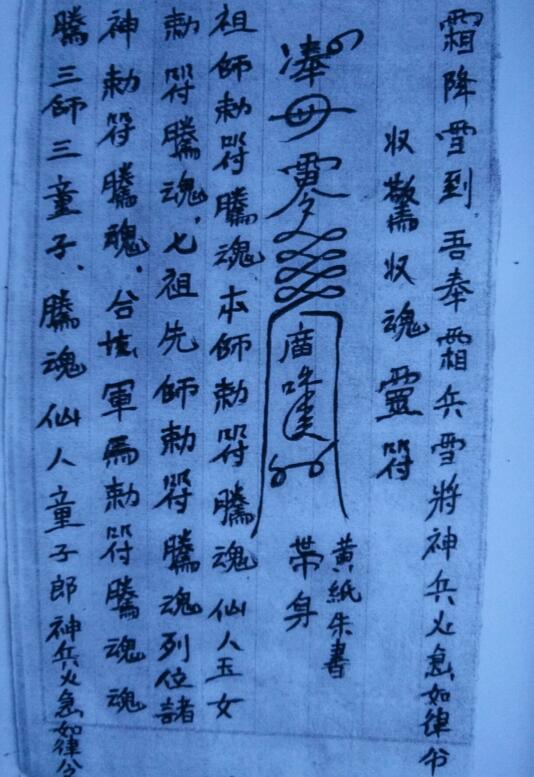 霜降雪到.吾奉霜兵雪將神兵火急如律令
収驚収魂靈符
黃紙朱書
帶身
祖師勅符騰魂本師勅符騰魂仙人玉女
勅符騰魂.七祖先師勅符騰魂列位諸
神勅符騰魂.合壇軍馬勅符騰魂魂
騰三師三童子、騰魂仙人童子郎神兵火急如律令